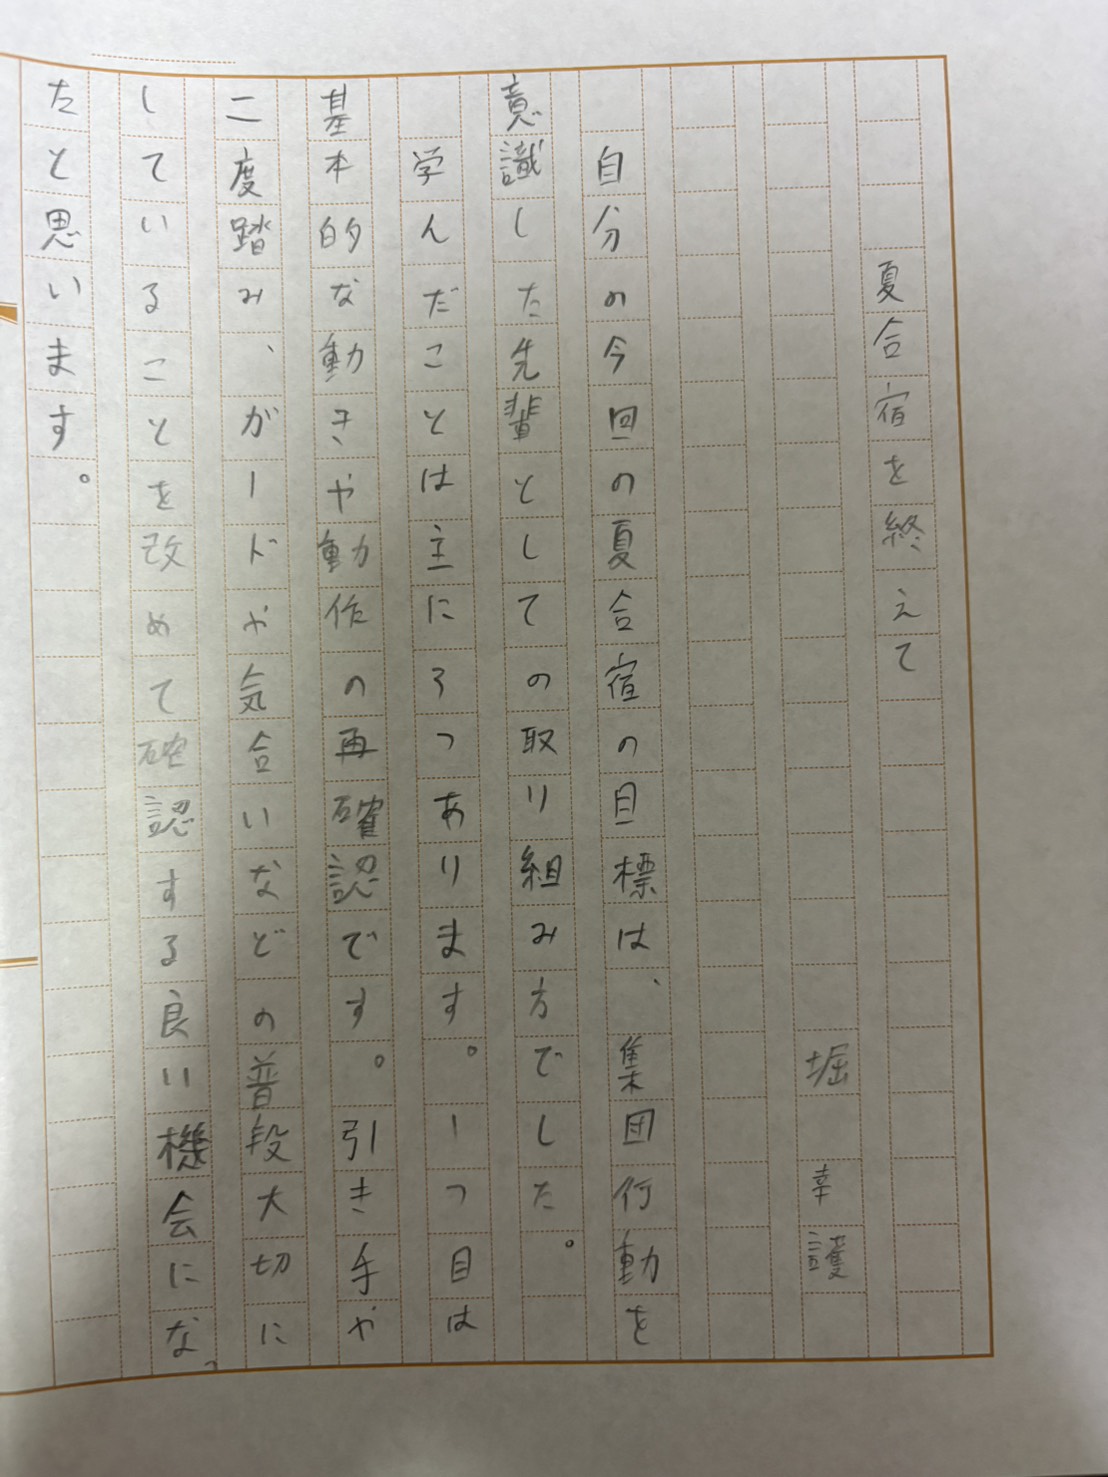 夏合宿を終えて
堀 幸護
自分の今回の夏合宿の目標は、集団行動を
意識した先輩としての取り組み方でした。
学んだことは主に3つあります。1つ目は
基本的な動きや動作の再確認です。引き手や
二度踏み、ガードや気合いなどの普段大切に
していることを改めて確認する良い機会になっ
たと思います。